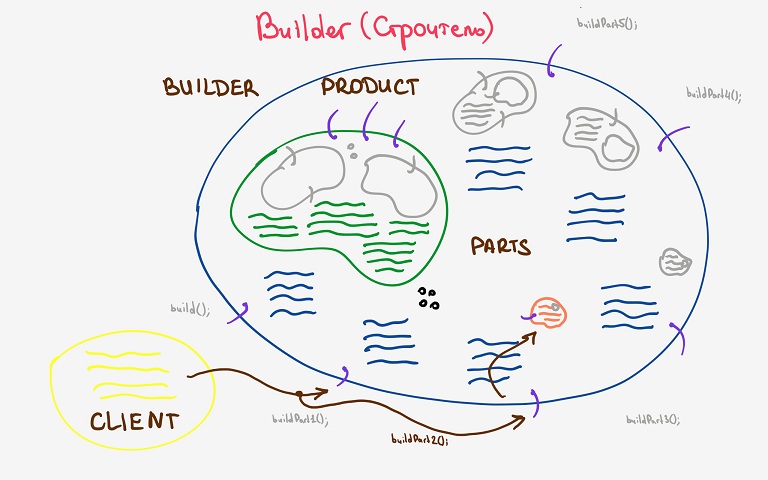 Builder (Строитель)
buildPart5();
BUILDER PRODUCT
buildPart4();
PARTS
build();
CLIENT
buildPart1();
buildPart2();
buildPart3();